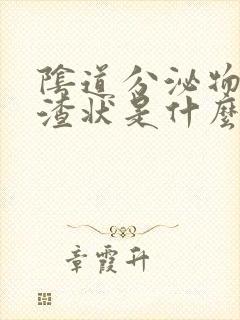 陰道分泌物
渣狀是什麼
章霞升